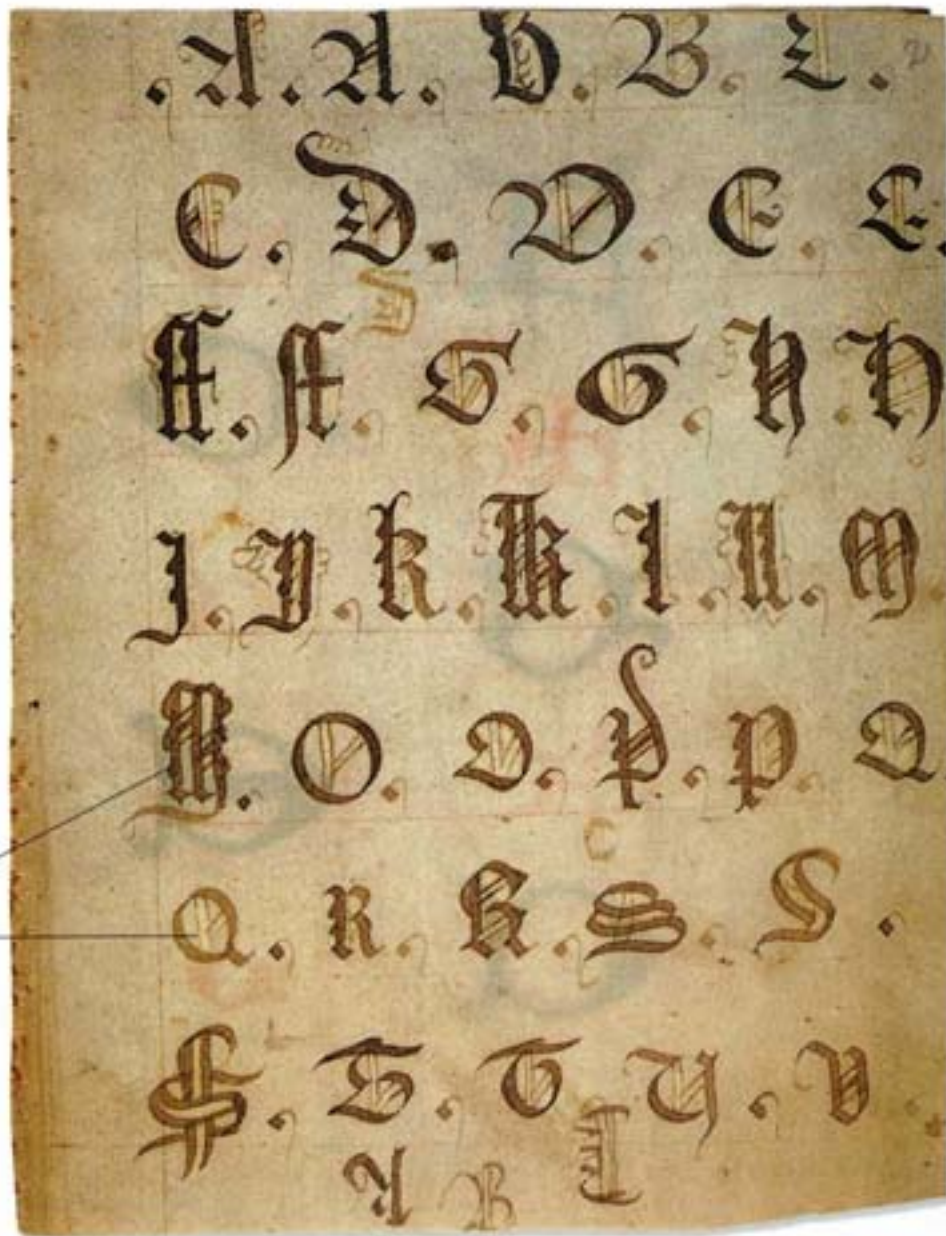 . A . A . B . B . C .
C . D . D . E . E .
ff . ff . G . G . H . H
J . J . k . k . l . ll . M .
M . O . O . P . P . Q
Q . R . R . S . S .
S . T . T . U . V .
A B L